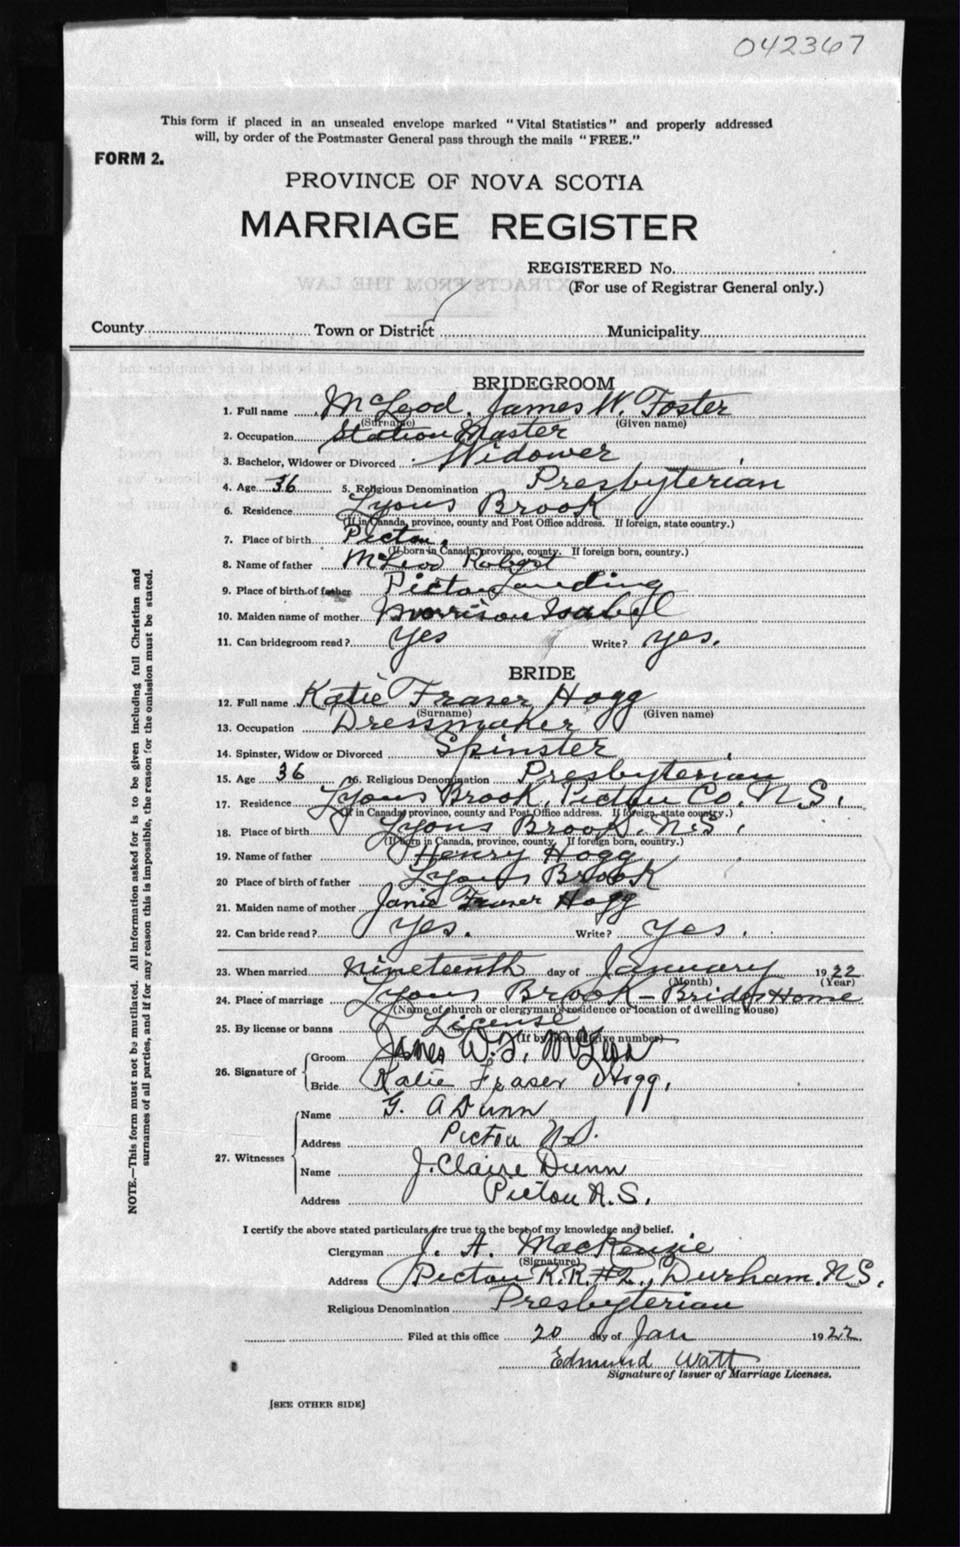 042367
This form if placed in an unsealed envelope marked "Vital Statistics" and properly addressed
will, by order of the Postmaster General pass through the mails "FREE."
FORM 2.
PROVINCE OF NOVA SCOTIA
MARRIAGE REGISTER
REGISTERED No.
(For use of Registrar General only.)
County Town or District Municipality
BRIDEGROOM
1. Full name McLeod, James W. Foster
(Surname) (Given name)
2. Occupation Station Master
3. Bachelor, Widower or Divorced Widower
4. Age 36 5. Religious Denomination Presbyterian
6. Residence Lyons Brook
(If in Canada, province, county and Post Office address. If foreign, state country.)
7. Place of birth Pictou,
(If born in Canada, province, county. If foreign born, country.)
8. Name of father McLeod Robert
9. Place of birth of father Pictou Landing
10. Maiden name of mother Morrison Isabel
11. Can bridegroom read? Yes Write? Yes.
BRIDE
12. Full name Katie Fraser Hogg
(Surname) (Given name)
13. Occupation Dressmaker
14. Spinster, Widow or Divorced Spinster
15. Age 36 16. Religious Denomination Presbyterian
17. Residence Lyons Brook, Pictou Co. N.S.
(If in Canada, province, county and Post Office address. If foreign, state country.)
18. Place of birth Lyons Brook. N.S.
(If born in Canada, province, county. If foreign born, country.)
19. Name of father Henry Hogg
20 Place of birth of father Lyons Brook
21. Maiden name of mother Janie Fraser Hogg
22. Can bride read? Yes. Write? Yes.
23. When married Nineteenth day of January 1922
(Month) (Year)
24. Place of marriage Lyons Brook - Brides Home
(Name of church or clergyman's residence or location of dwelling house)
25. By license or banns License
(If by license give number)
26. Signature of Groom James W. F. McLeod
Bride Katie Fraser Hogg.
27. Witnesses Name G. A Dunn
Address Pictou N.S.
Name J. Claire Dunn
Address Pictou N.S.
I certify the above stated particulars are true to the best of my knowledge and belief.
Clergyman J. A. MacKenzie
(Signature)
Address Pictou R.R. #2, Durham. N.S.
Religious Denomination Presbyterian
Filed at this office 20 day of Jan 1922.
Edmund Watt
Signature of Issuer of Marriage Licenses.
[SEE OTHER SIDE]
NOTE.—This form must not be mutilated. All information asked for is to be given including full Christian and
surnames of all parties, and if for any reason this is impossible, the reason for the omission must be stated.